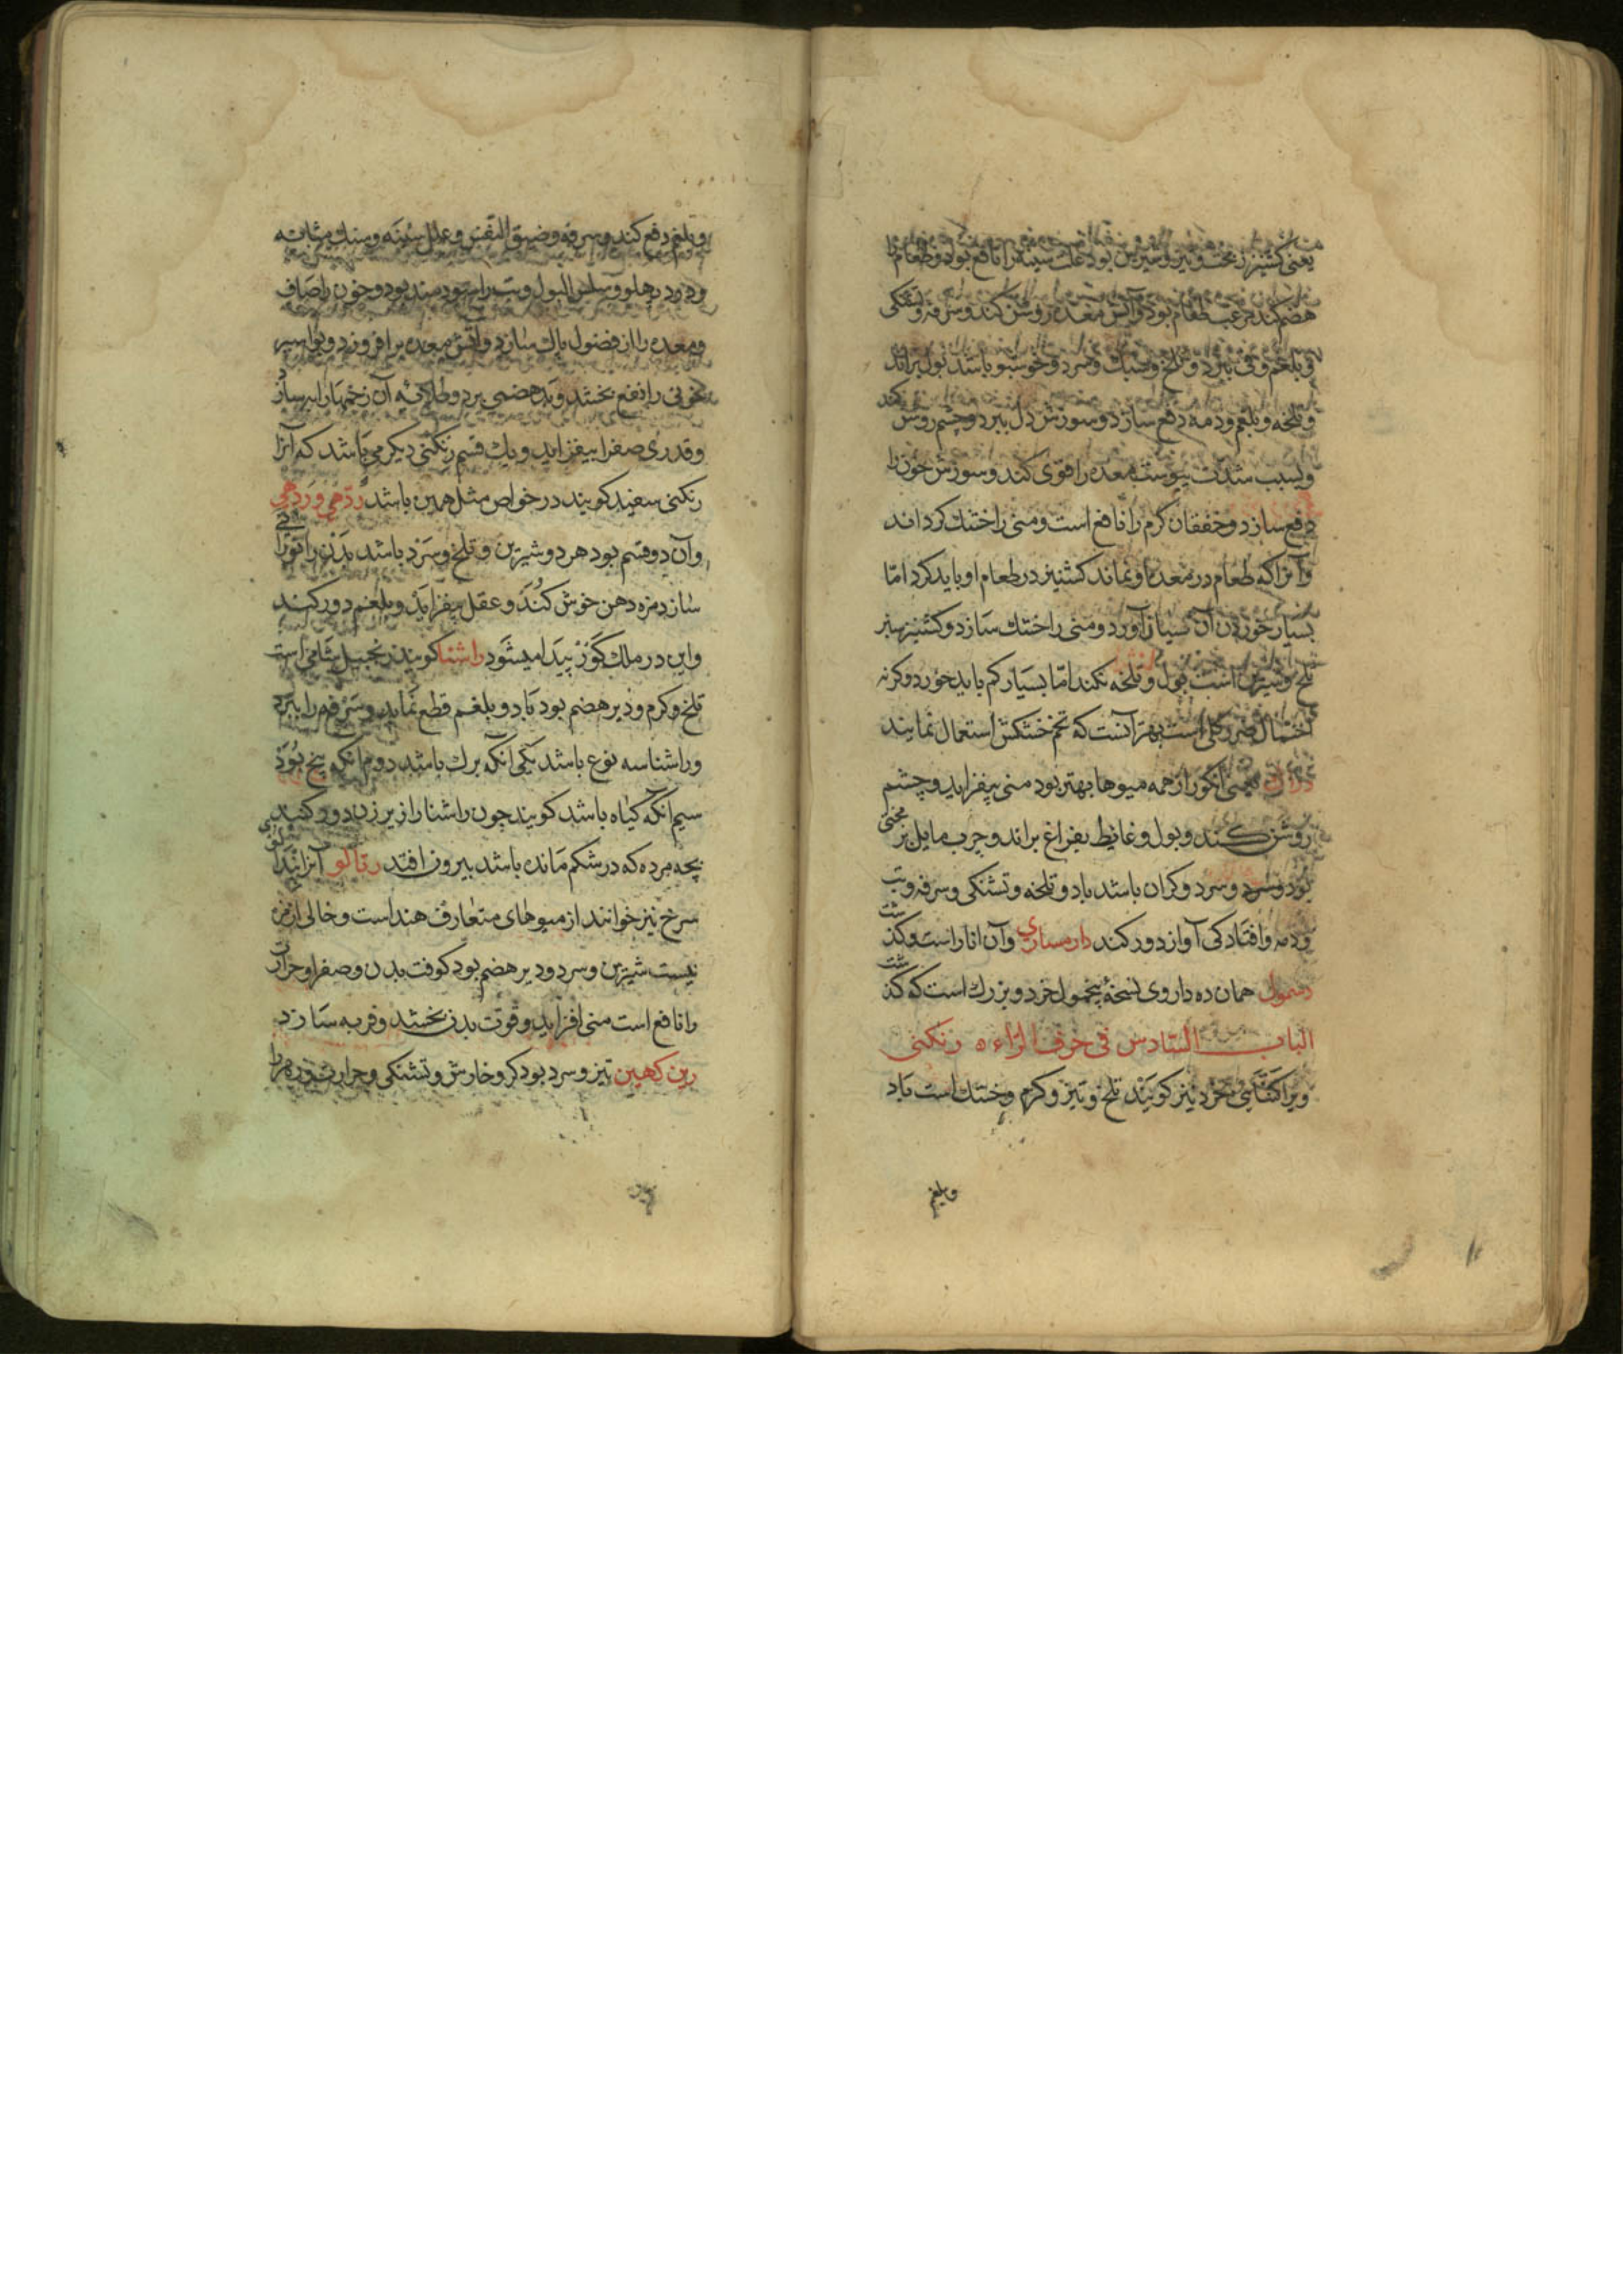 یعنی کشنیز زمخت و تیز و شیرین بود علل سینه را نافع بود و طعام را
هضم کند مرغب طعام بود و آتش معده روشن کند و سرفه و تشنکی
و بلغم و قی ببرد و تلخ و سبک و سرد و خوشبو باشد بول براند
و تلخه و بلغم و دمه دفع سازد و سوزش دل ببرد و چشم روشن کند
و بسبب شدت یبوست معده را قوی کند و سوزش خون را
دفع سازد و خفقان کرم را نافع است و منی را خشک کرداند
و آنرا که طعام در معدهٔ او نماند کشنیز در طعام او باید کرد امّا
بسیار خوردن آن نسیان آورد و منی را خشک سازد و کشنیز سبز
تلخ و شیرین است بول و تلخه نکند امّا بسیار کم باید خورد و کرنه
احتمال ضرر کلی است بهتر آنست که تخم خشکش استعمال نمایند
یعنی انکور از همه میوها بهتر بود منی بیفزاید و چشم
روشن کند و بول و غایط بفراغ براند و چرب مایل بزمختی
بود و سرد و کران باشد باد و تلخه و تشنکی و سرفه و تب
و دمه و افتادکی آواز دور کند دارمساری و آن انار است و کذشت
دسمول همان ده داروی نسخهٔ پنجمول خرد و بزرک است که کذشت
الباب السّادس فی حرف الرّاء ه رنکنی
ویرا کتّایی خرد نیز کویند تلخ و تیز و کرم و خشک است باد
و بلغم
و بلغم دفع کند و سرفه و ضیق النفس و علل سینه و سنک مثانه
و درد پهلو و سلس البول و تب را سودمند بود و خون را صاف
و معده را از فضول پاک سازد و آتش معده بر افروزد و بواسیر
خونی را نفع بخشد و بدهضمی برد و طلای آن زخمها را به سازد
و قدری صفرا بیفزاید و یک قسم رنکنی دیکر می باشد که آنرا
رنکنی سفید کویند در خواص مثل همین باشد ردّهی و رَدهی
و آن دو قسم بود هر دو شیرین و تلخ و سرد باشد بدن را قوی
سازد مزه دهن خوش کند و عقل بیفزاید و بلغم دور کند
و این در ملک کور پیدا میشود راشنا کویند زنجبیل شامی است
تلخ و کرم و دیر هضم بود باد و بلغم قطع نماید و سرفه را ببرد
و راشنا سه نوع باشد یکی آنکه برک باشد دوم آنکه بیخ بود
سیم آنکه کیاه باشد کویند چون راشنا را از زیر زن دود کنند
بچه مرده که در شکم مانده باشد بیرون افتد رتالو آنرا پندالوی
سرخ نیز خوانند از میوهای متعارف هند است و خالی از مزه
نیست شیرین و سرد و دیر هضم بود کوفت بدن و صفرا و حرارت
را نافع است منی افزاید و قوّت بدن بخشد و فربه سازد
رین کهین تیز و سرد بود کر و خارش و تشنکی و حرارت و ورم را